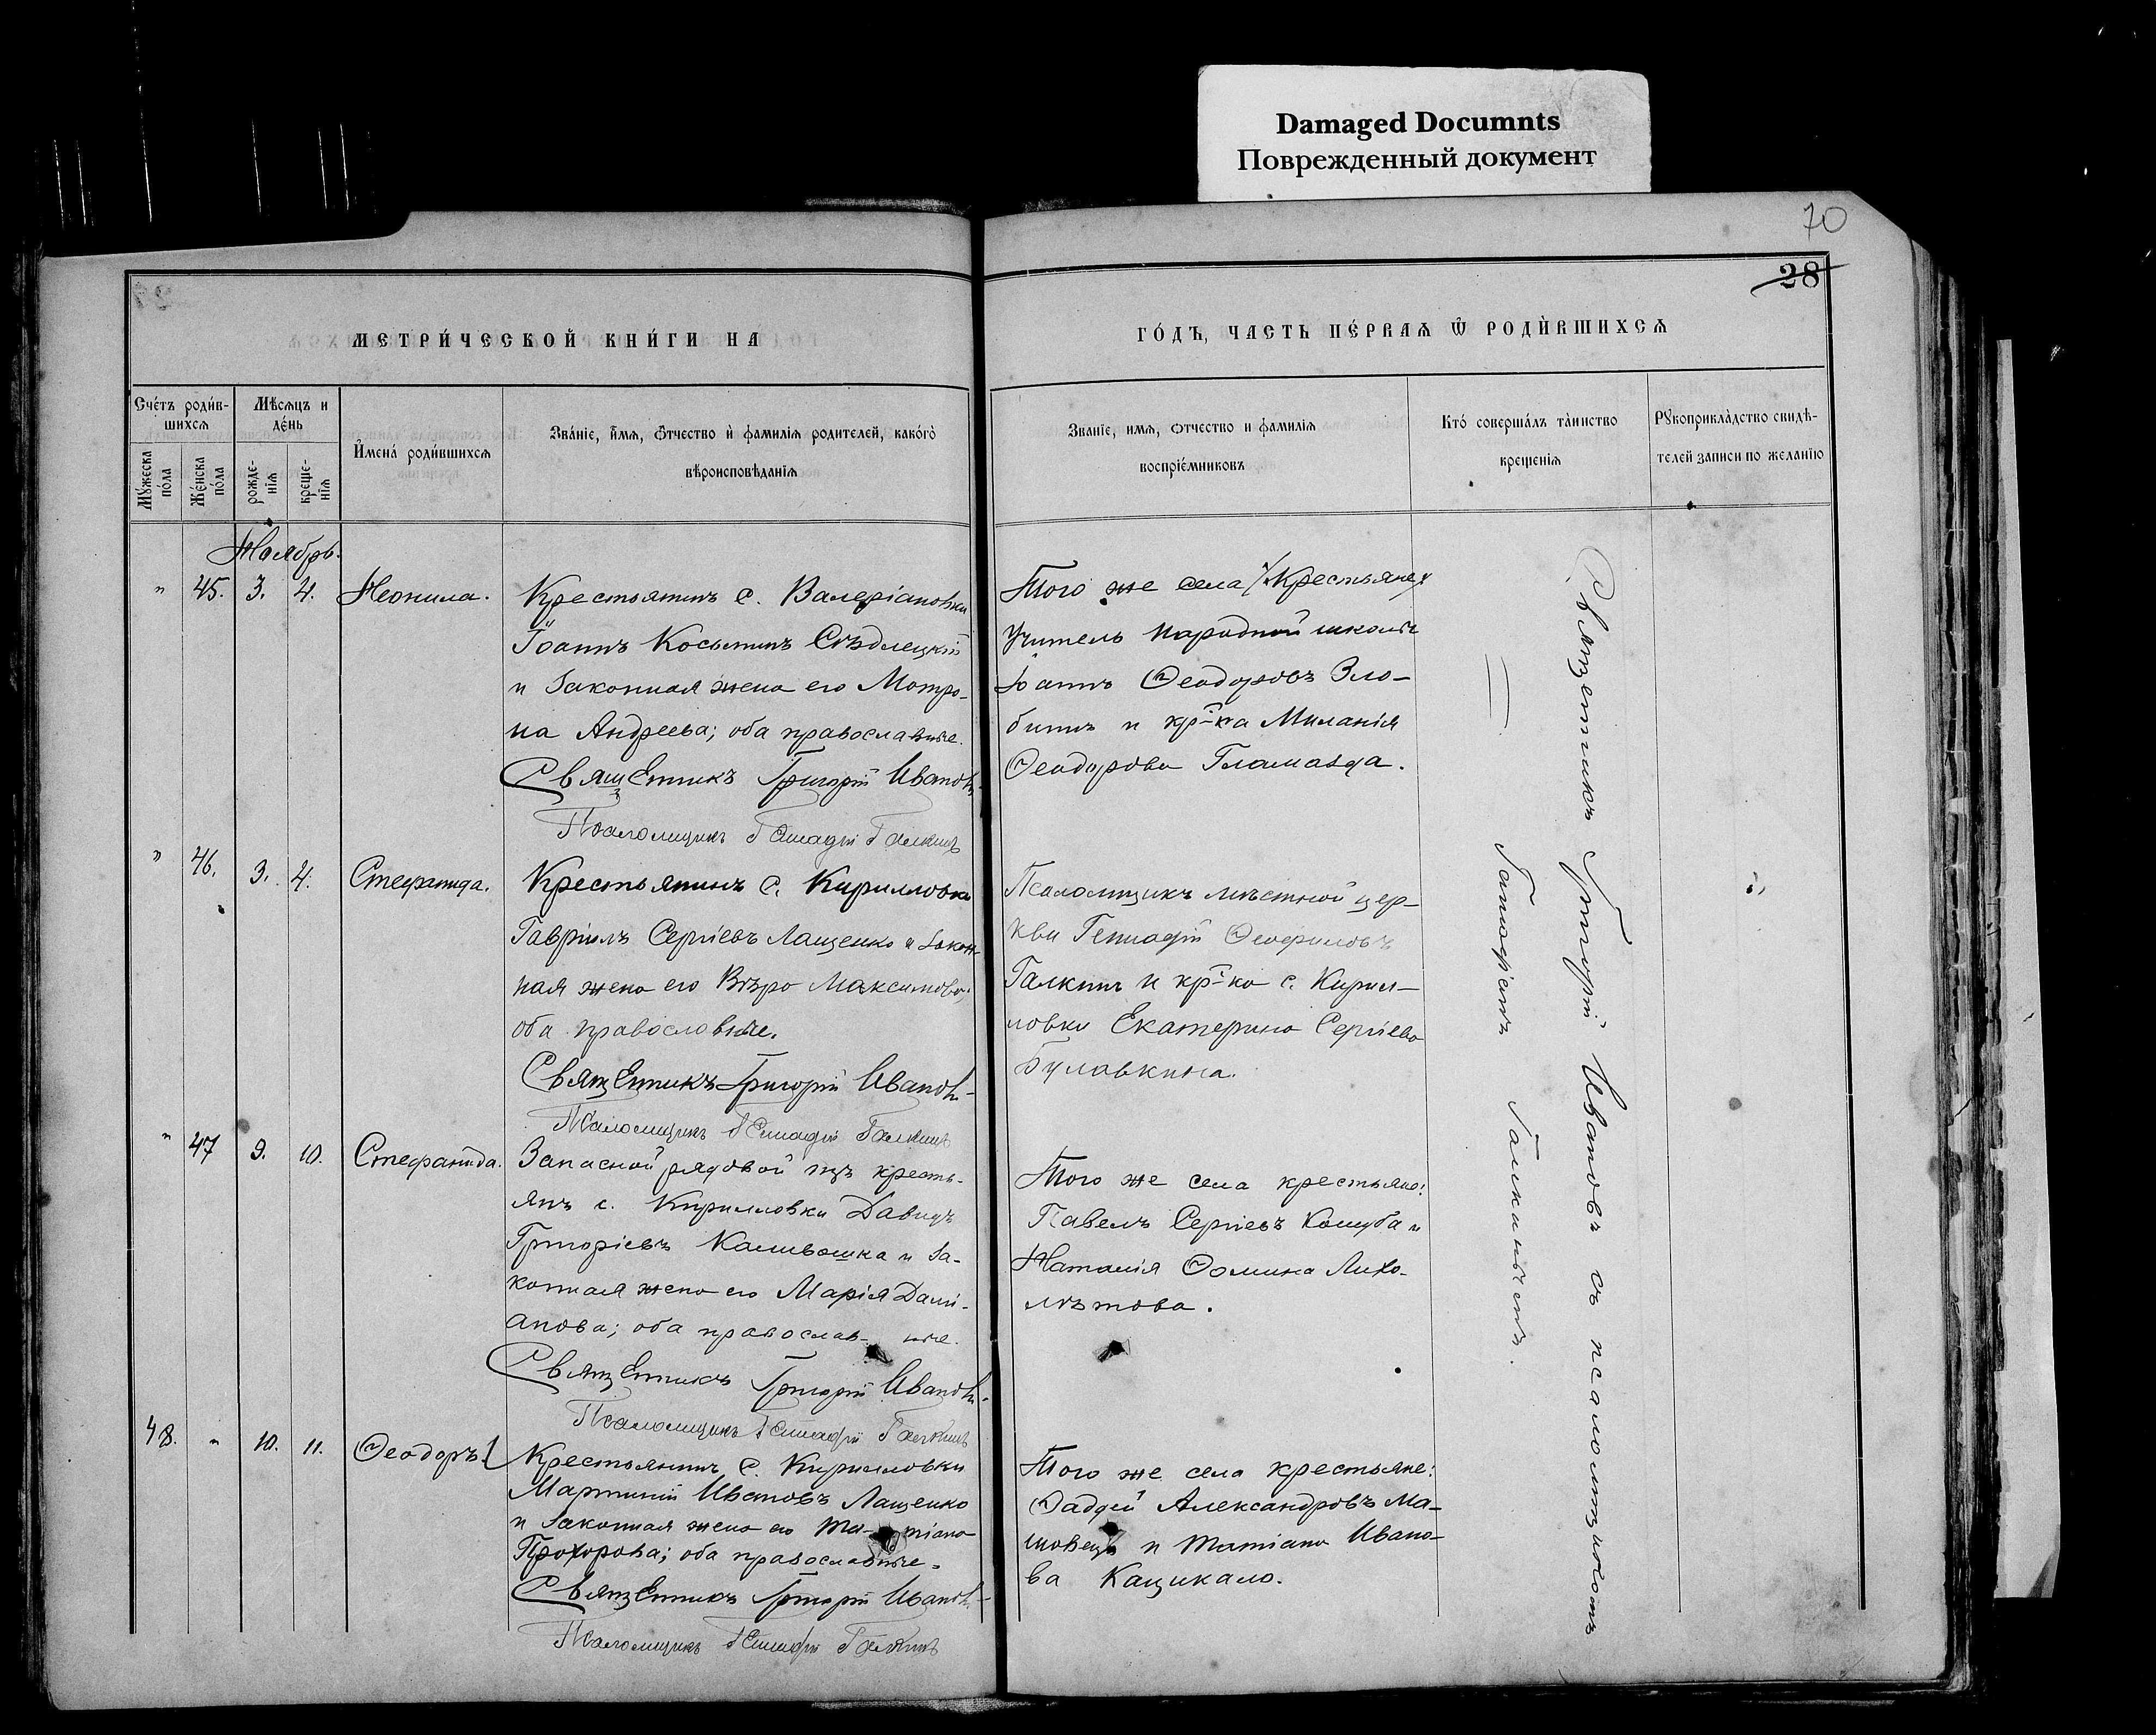 Damaged Documnts
Поврежденный документ
70
28
МЕТРИ́ЧЕСКОЙ КНИ́ГИ НА
ГО́ДЪ, ЧАСТЬ ПЕ́РВАѦ Ѿ РОДИ́ВШИХСѦ
Сче́тъ роди́в-
шихсѧ
Мѣ́сѧцъ и
де́нь
Мꙋ́жеска
по́ла
Же́нска
по́ла
рожде́-
нїѧ
креще-
нїѧ
И҆мена̀ роди́вшихсѧ
Зва́нїе, и҆́мѧ, ѻ҆́тчество и҆ фамилїѧ родителей, како́гѡ
вѣроисповѣ́данїѧ
Званїе, имѧ, ѻтчество и фамилїѧ
воспрїе́мниковъ
Кто́ соверша́лъ та́инство
крещенїѧ
Рꙋкоприкла́дство свидѣ́-
телей записи по желанїю
Ноябрь.
" 45. 3. 4. Неонила.
Крестьянинъ с. Валеріановки
Іоаннъ Косьминъ Сѣдлецкій
и законная жена его Матро-
на Андреева; оба православные.
Священникъ Григорій Ивановъ
Псаломщикъ Геннадій Галкинъ
Того же села Крестьяне
Учитель народной школы
Іоаннъ Ѳеодоровъ Зло-
бинъ и кр-ка Миланія
Ѳеодорова Гламазда.
" 46. 3. 4. Стефанида.
Крестьянинъ с. Кирилловки
Гавріилъ Сергіевъ Лащенко и закон-
ная жена его Вѣра Максимова;
оба православные.
Священникъ Григорій Ивановъ
Псаломщикъ Геннадій Галкинъ
Псаломщикъ мѣстной цер-
кви Геннадій Ѳеофиловъ
Галкинъ и кр-ка с. Кирил-
ловки Екатерина Сергіева
Булавкина.
" 47 9. 10. Стефанида.
Запасной рядовой изъ кресть-
янъ с. Кирилловки Давидъ
Григоріевъ Каливошка и за-
конная жена его Марія Дамі-
анова; оба православ- ные.
Священникъ Григорій Ивановъ
Псаломщикъ Геннадій Галкинъ
Того же села крестьяне:
Павелъ Сергіевъ Кошуба и
Наталія Ѳомина Лихо-
лѣтова.
48. " 10. 11. Ѳеодоръ
Крестьянинъ с. Кирилловки
Мартиній Ивановъ Лащенко
и законная жена его Та- тіана
Прохорова; оба православные.
Священникъ Григорій Ивановъ
Псаломщикъ Геннадій Галкинъ
Того же села крестьяне:
Ѳаддей Александровъ Ма-
шовецъ и Татіана Ивано-
ва Кацикало.
Священникъ Григорій Ивановъ съ псаломщикомъ
Галкинымъ.